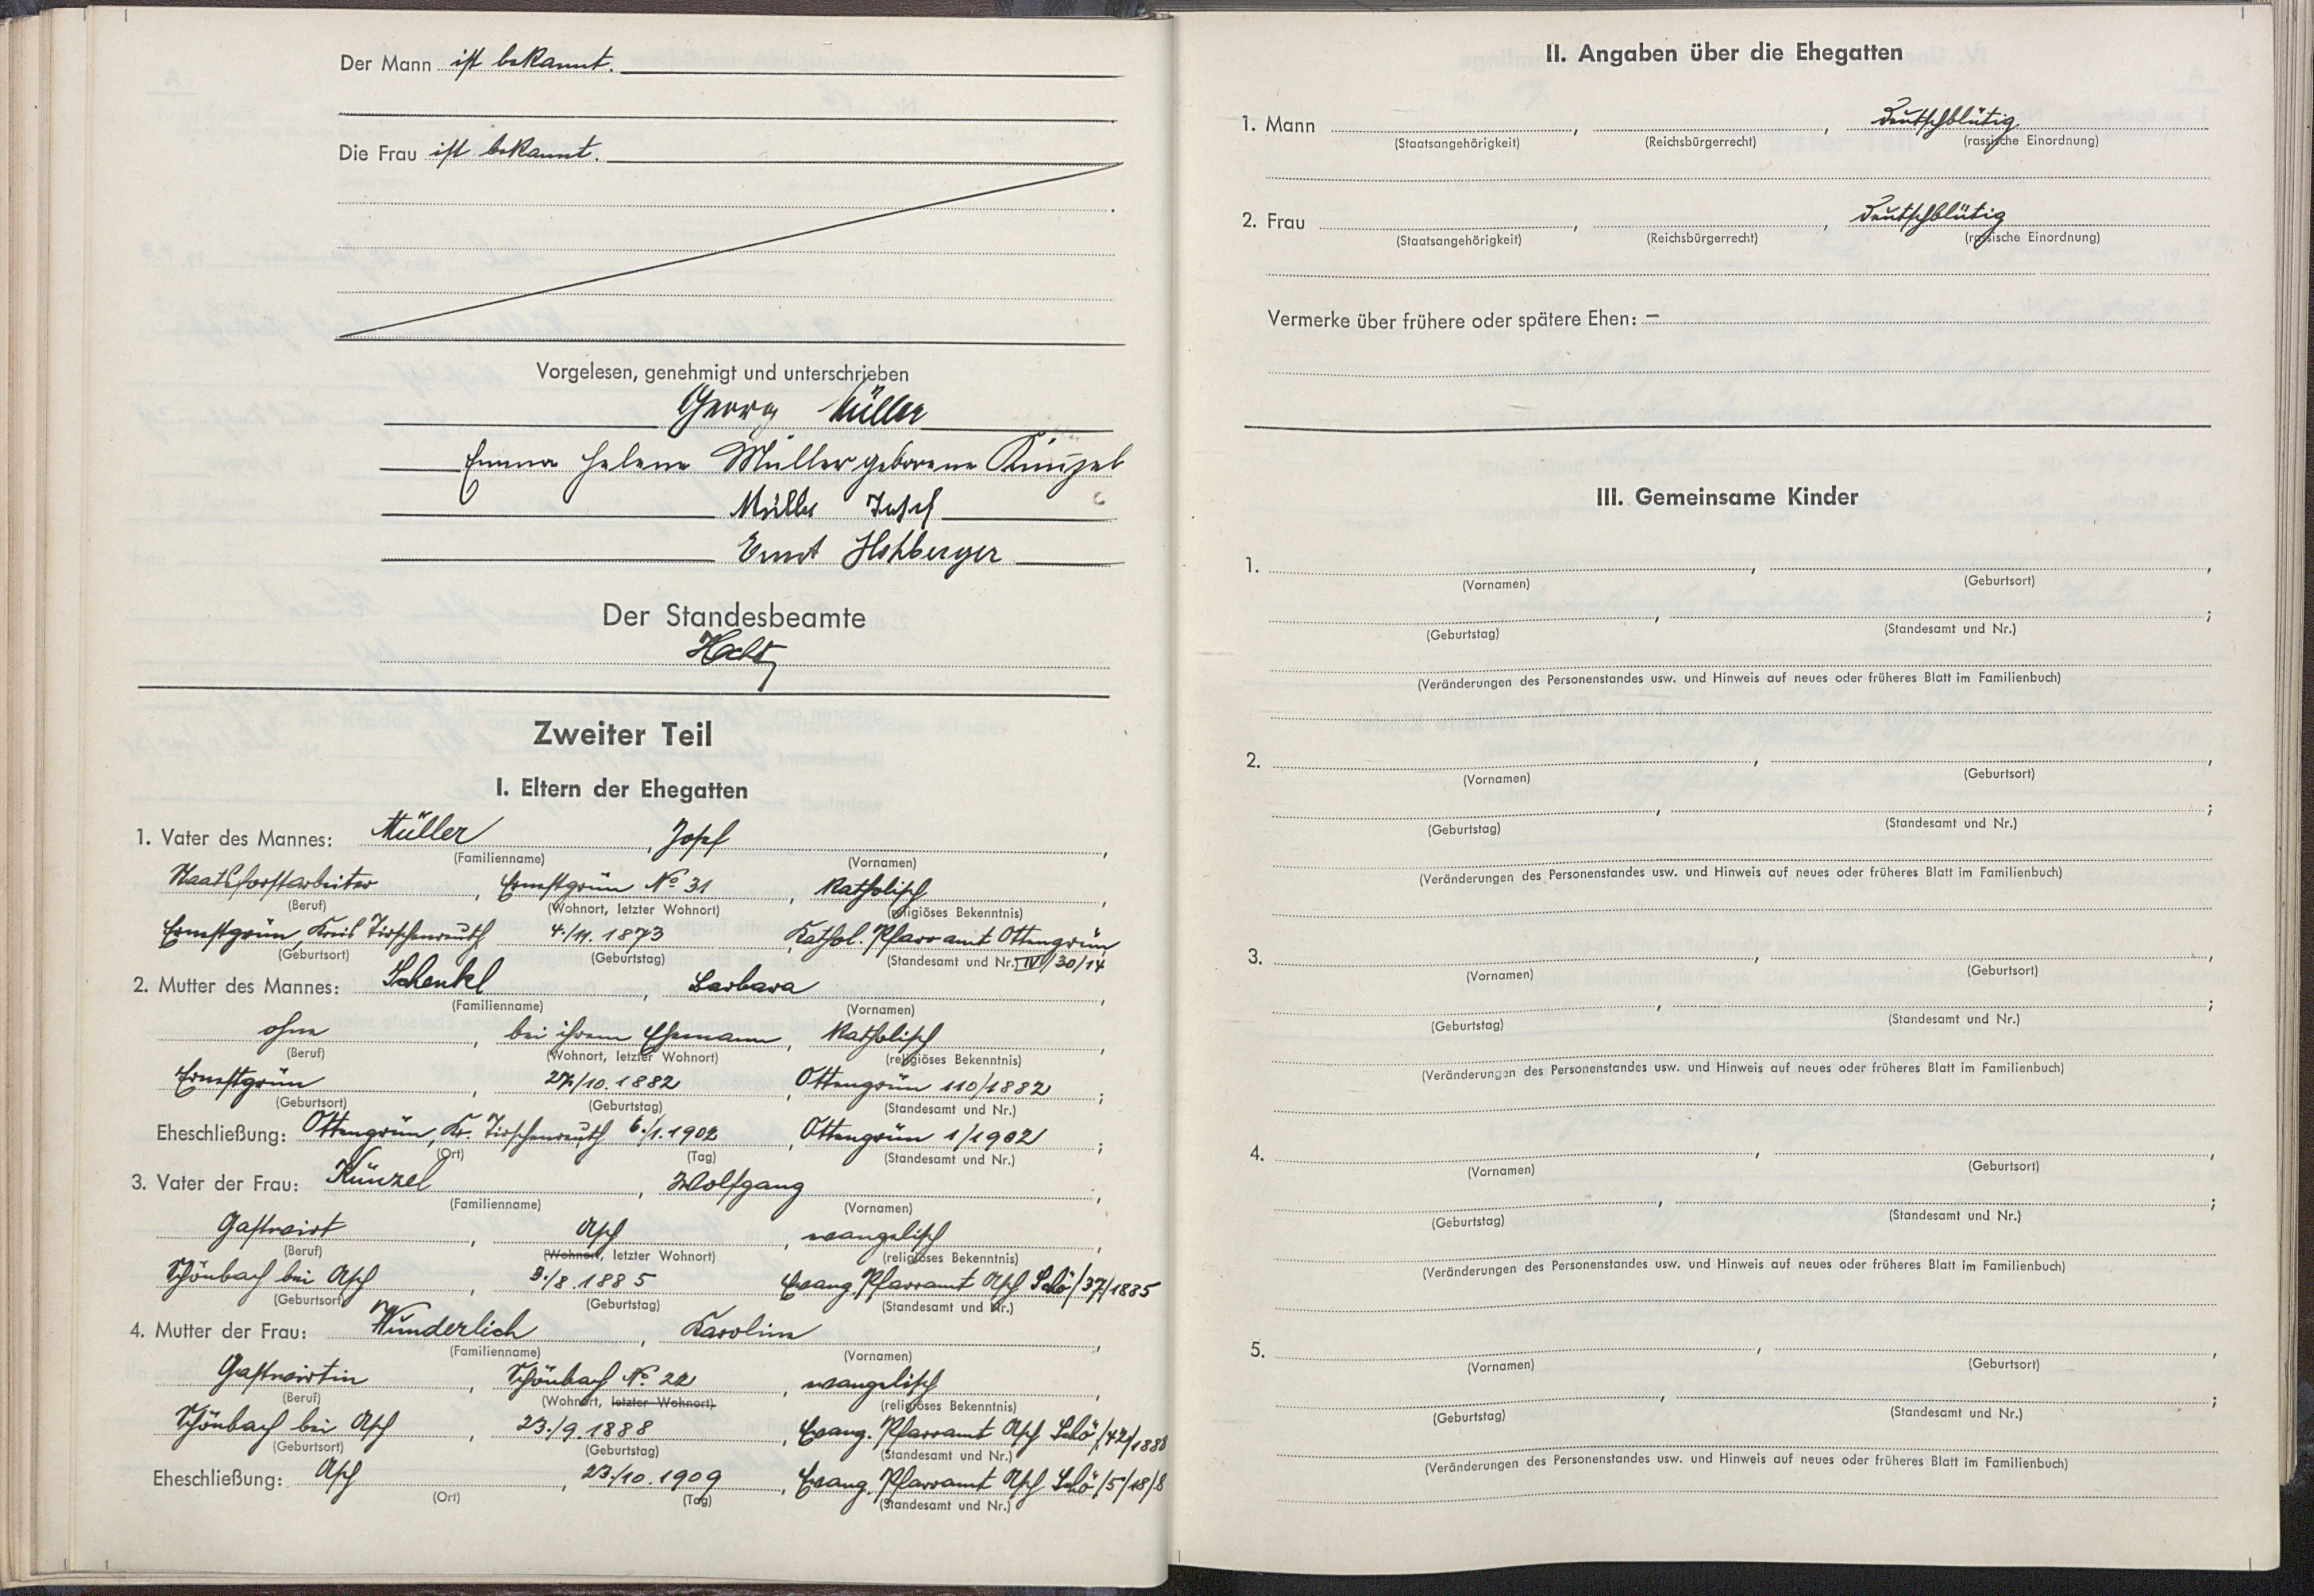 Der Mann ist bekannt.
Die Frau ist bekannt.
Vorgelesen, genehmigt und unterschrieben
Georg Müller
Emma Helene Müller geborene Künzel
Müller Josef
Ernst
Der Standesbeamte
Zweiter Teil
I. Eltern der Ehegatten
1. Vater des Mannes: Müller, Josef,
(Familienname) (Vornamen)
Staatsforstarbeiter, Ernestgrün No 31, katholisch,
(Beruf) (Wohnort, letzter Wohnort) (religiöses Bekenntnis)
Ernestgrün, Kreis Tirschenreuth 4./11. 1873, Kathol. Pfarramt Ottengrün
(Geburtsort) (Geburtstag) (Standesamt und Nr.) IV/30/14
2. Mutter des Mannes: Schenkl, Barbara,
(Familienname) (Vornamen)
ohne, bei ihrem Ehemann, katholisch,
(Beruf) (Wohnort, letzter Wohnort) (religiöses Bekenntnis)
Ernestgrün, 27./10. 1882, Ottengrün 110/1882;
(Geburtsort) (Geburtstag) (Standesamt und Nr.)
Eheschließung: Ottengrün, Kr. Tirschenreuth 6./1. 1902, Ottengrün 1/1902;
(Ort) (Tag) (Standesamt und Nr.)
3. Vater der Frau: Künzel, Wolfgang,
(Familienname) (Vornamen)
Gastwirt, Asch, evangelisch,
(Beruf) (Wohnort, letzter Wohnort) (religiöses Bekenntnis)
Schönbach bei Asch, 3./8. 1885 Evang. Pfarramt Asch Schö/37/1885
(Geburtsort) (Geburtstag) (Standesamt und Nr.)
4. Mutter der Frau: Wunderlich, Karolina,
(Familienname) (Vornamen)
Gastwirtin, Schönbach No. 22, evangelisch,
(Beruf) (Wohnort, letzter Wohnort) (religiöses Bekenntnis)
Schönbach bei Asch, 23./9. 1888, Evang. Pfarramt Asch Schö/42/1888
(Geburtsort) (Geburtstag) (Standesamt und Nr.)
Eheschließung: Asch, 23./10. 1909, Evang. Pfarramt Asch Schö/5/18/8
(Ort) (Tag) (Standesamt und Nr.)
II. Angaben über die Ehegatten
1. Mann , , deutschblütig
(Staatsangehörigkeit) (Reichsbürgerrecht) (rassische Einordnung)
2. Frau , , deutschblütig
(Staatsangehörigkeit) (Reichsbürgerrecht) (rassische Einordnung)
Vermerke über frühere oder spätere Ehen: –
III. Gemeinsame Kinder
1. , ,
(Vornamen) (Geburtsort)
, ;
(Geburtstag) (Standesamt und Nr.)
(Veränderungen des Personenstandes usw. und Hinweis auf neues oder früheres Blatt im Familienbuch)
2. , ,
(Vornamen) (Geburtsort)
, ;
(Geburtstag) (Standesamt und Nr.)
(Veränderungen des Personenstandes usw. und Hinweis auf neues oder früheres Blatt im Familienbuch)
3. , ,
(Vornamen) (Geburtsort)
, ;
(Geburtstag) (Standesamt und Nr.)
(Veränderungen des Personenstandes usw. und Hinweis auf neues oder früheres Blatt im Familienbuch)
4. , ,
(Vornamen) (Geburtsort)
, ;
(Geburtstag) (Standesamt und Nr.)
(Veränderungen des Personenstandes usw. und Hinweis auf neues oder früheres Blatt im Familienbuch)
5. , ,
(Vornamen) (Geburtsort)
, ;
(Geburtstag) (Standesamt und Nr.)
(Veränderungen des Personenstandes usw. und Hinweis auf neues oder früheres Blatt im Familienbuch)